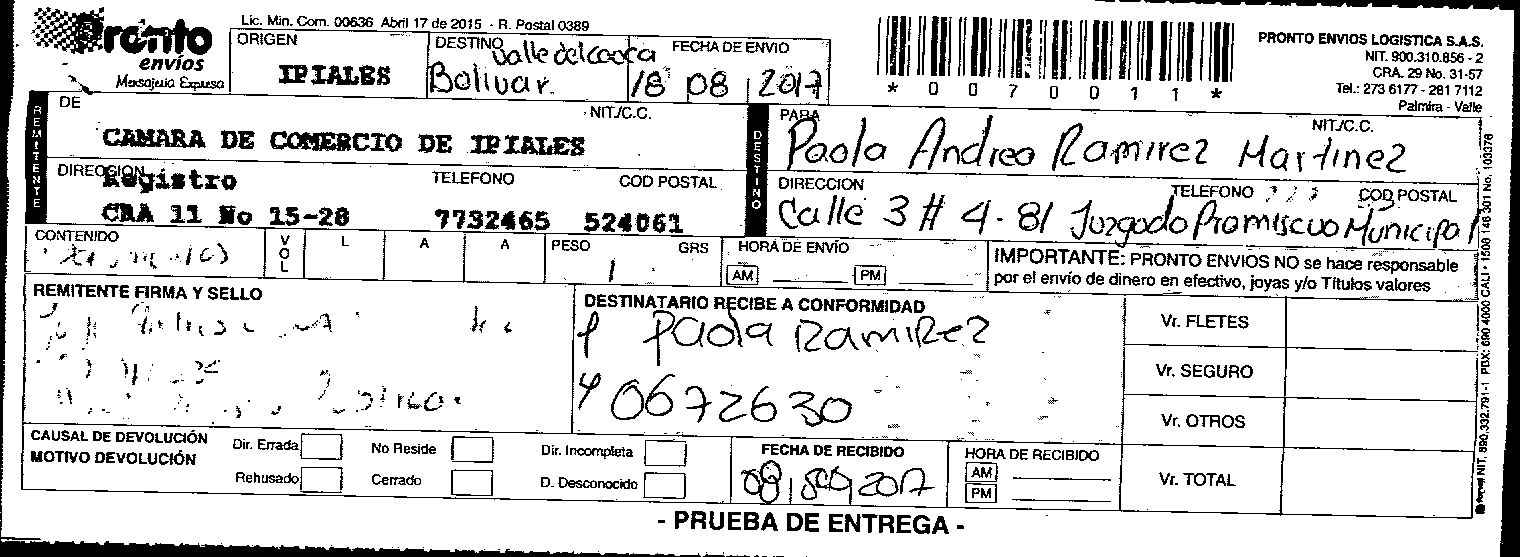 Lic. Min. Com. 00636 Abril 17 de 2015 - R. Postal 0389
Pronto
envíos
Mensajería Expresa
ORIGEN
IPIALES
DESTINO Valle del cauca
Bolivar.
FECHA DE ENVIO
18 08 2017
*00700011*
PRONTO ENVIOS LOGISTICA S.A.S.
NIT. 900.310.856 - 2
CRA. 29 No. 31-57
Tel.: 273 6177 - 281 7112
Palmira - Valle
REMITENTE
DE
NIT./C.C.
CAMARA DE COMERCIO DE IPIALES
DIRECCION
Registro
TELEFONO
COD POSTAL
CRA 11 No 15-28 7732465 524061
DESTINO
PARA
NIT./C.C.
Paola Andrea Ramirez Martinez
DIRECCION
TELEFONO
COD POSTAL
Calle 3 # 4-81 Juzgado Promiscuo Municipal
CONTENIDO
VOL
L
A
A
PESO
GRS
1
HORA DE ENVÍO
AM
PM
IMPORTANTE: PRONTO ENVIOS NO se hace responsable
por el envío de dinero en efectivo, joyas y/o Títulos valores
REMITENTE FIRMA Y SELLO
DESTINATARIO RECIBE A CONFORMIDAD
Paola Ramirez
40672630
Vr. FLETES
Vr. SEGURO
Vr. OTROS
Vr. TOTAL
CAUSAL DE DEVOLUCIÓN
MOTIVO DEVOLUCIÓN
Dir. Errada
No Reside
Dir. Incompleta
Rehusado
Cerrado
D. Desconocido
FECHA DE RECIBIDO
2017
HORA DE RECIBIDO
AM
PM
- PRUEBA DE ENTREGA -
NIT. 890.332.791-1 PBX: 690 4000 CALI • 1508 146 301 No. 103378